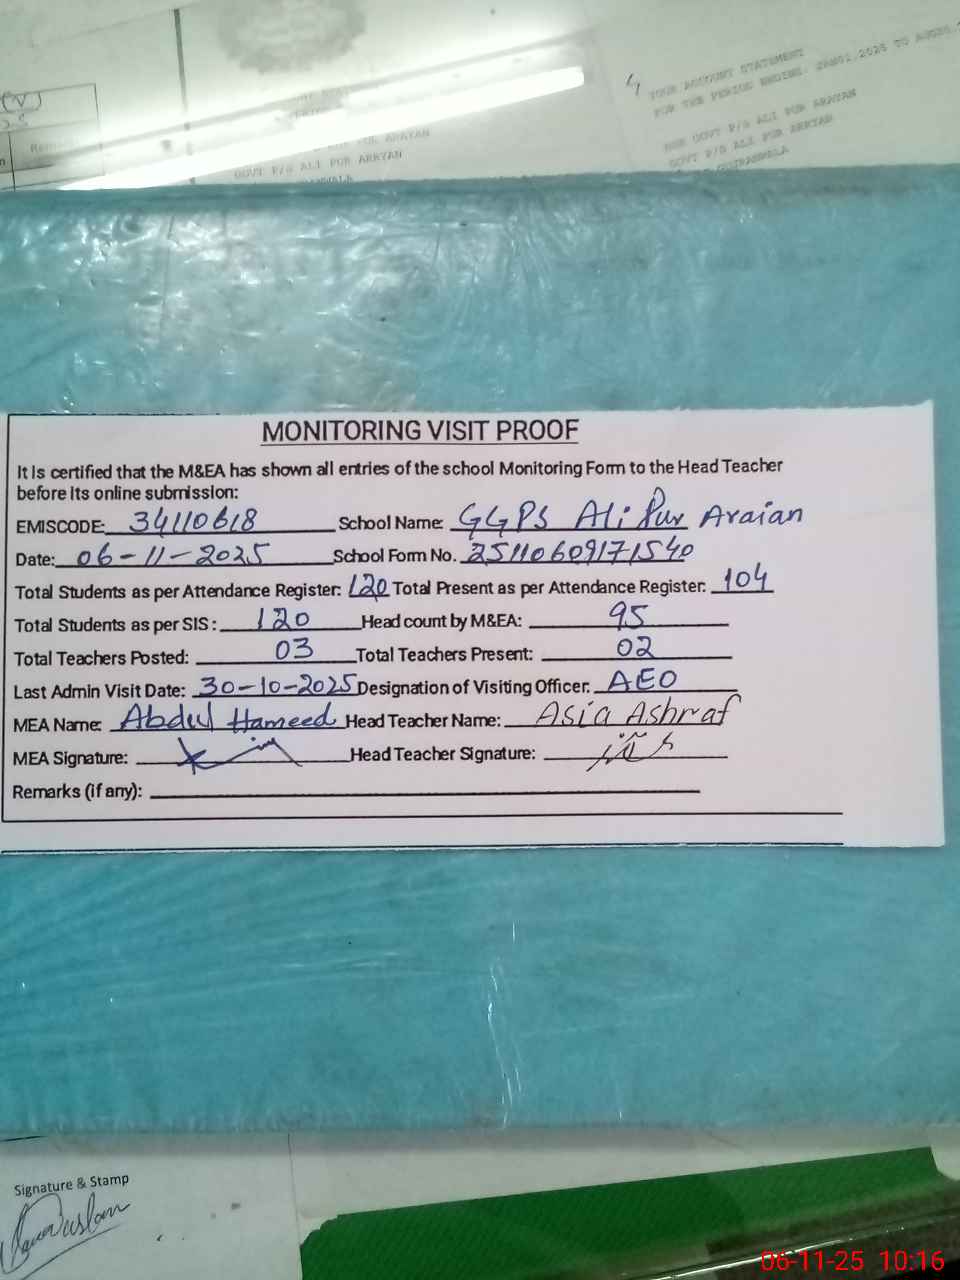 (V)
YOUR ACCOUNT STATEMENT
FOR THE PERIOD ENDING: JAN01,2025 TO
GOVT P/S ALI PUR ARAYAN
GOVT P/S ALI PUR ARRYAN
GOVT P/S ALI PUR ARRYAN
MONITORING VISIT PROOF
It Is certified that the M&EA has shown all entries of the school Monitoring Form to the Head Teacher
before Its online submission:
EMISCODE: 34110618 School Name: GGPS Ali Pur Araian
Date: 06-11-2025 School Form No. 25110609171540
Total Students as per Attendance Register: 120 Total Present as per Attendance Register: 104
Total Students as per SIS: 120 Head count by M&EA: 95
Total Teachers Posted: 03 Total Teachers Present: 02
Last Admin Visit Date: 30-10-2025 Designation of Visiting Officer: AEO
MEA Name: Abdul Hameed Head Teacher Name: Asia Ashraf
MEA Signature: Head Teacher Signature:
Remarks (if any):
Signature & Stamp
06-11-25 10:16